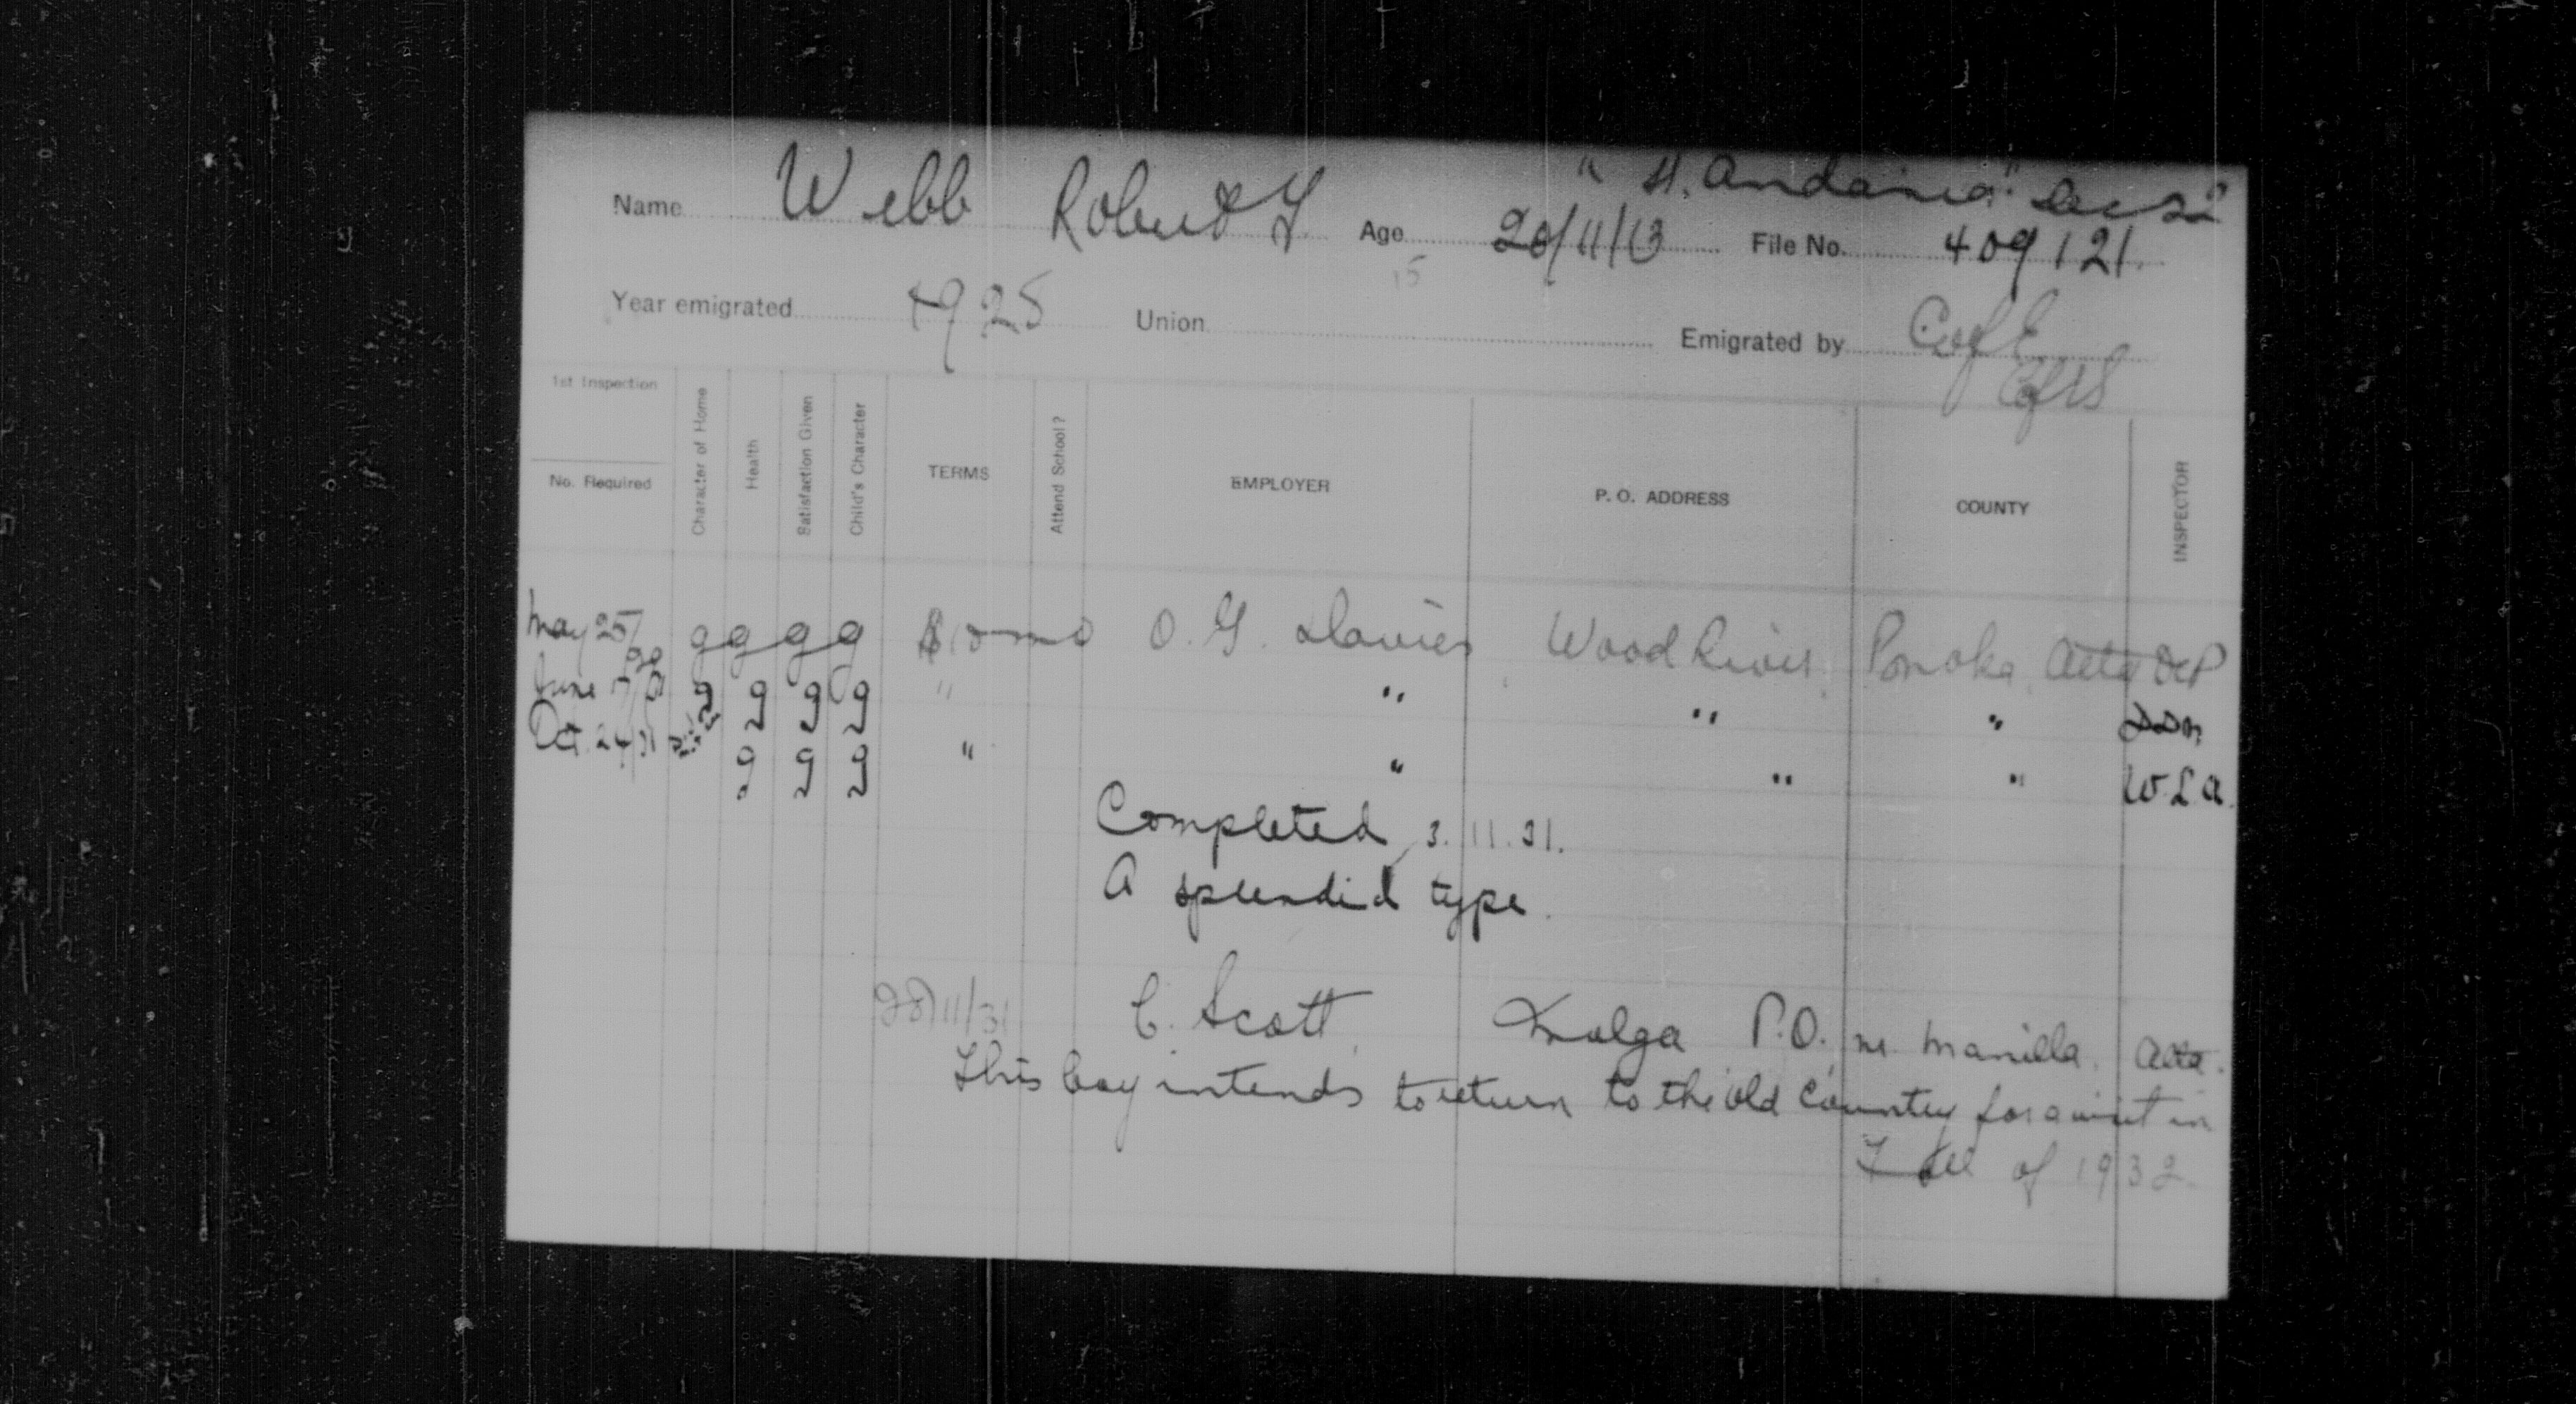 " A. Andania"
Name Webb Robert Age 20/11/13 File No. 409121.
15
Year emigrated 1925 Union Emigrated by C of E
1st Inspection
No. Required
Character of Home
Health
Satisfaction Given
Child's Character
TERMS
Attend School?
EMPLOYER
P. O. ADDRESS
COUNTY
INSPECTOR
May 25/30 g g g g $10 mo O. G. Davies Wood River Ponoka Alta
June 17/31 g g g g " " " "
Oct. 24/31 g g g " " " " W.L.a.
Completed 3.11.31.
A splendid type.
28/11/31 C. Scott P.O. nr Alta.
This boy intends to return to the old country for a visit in
Fall of 1932